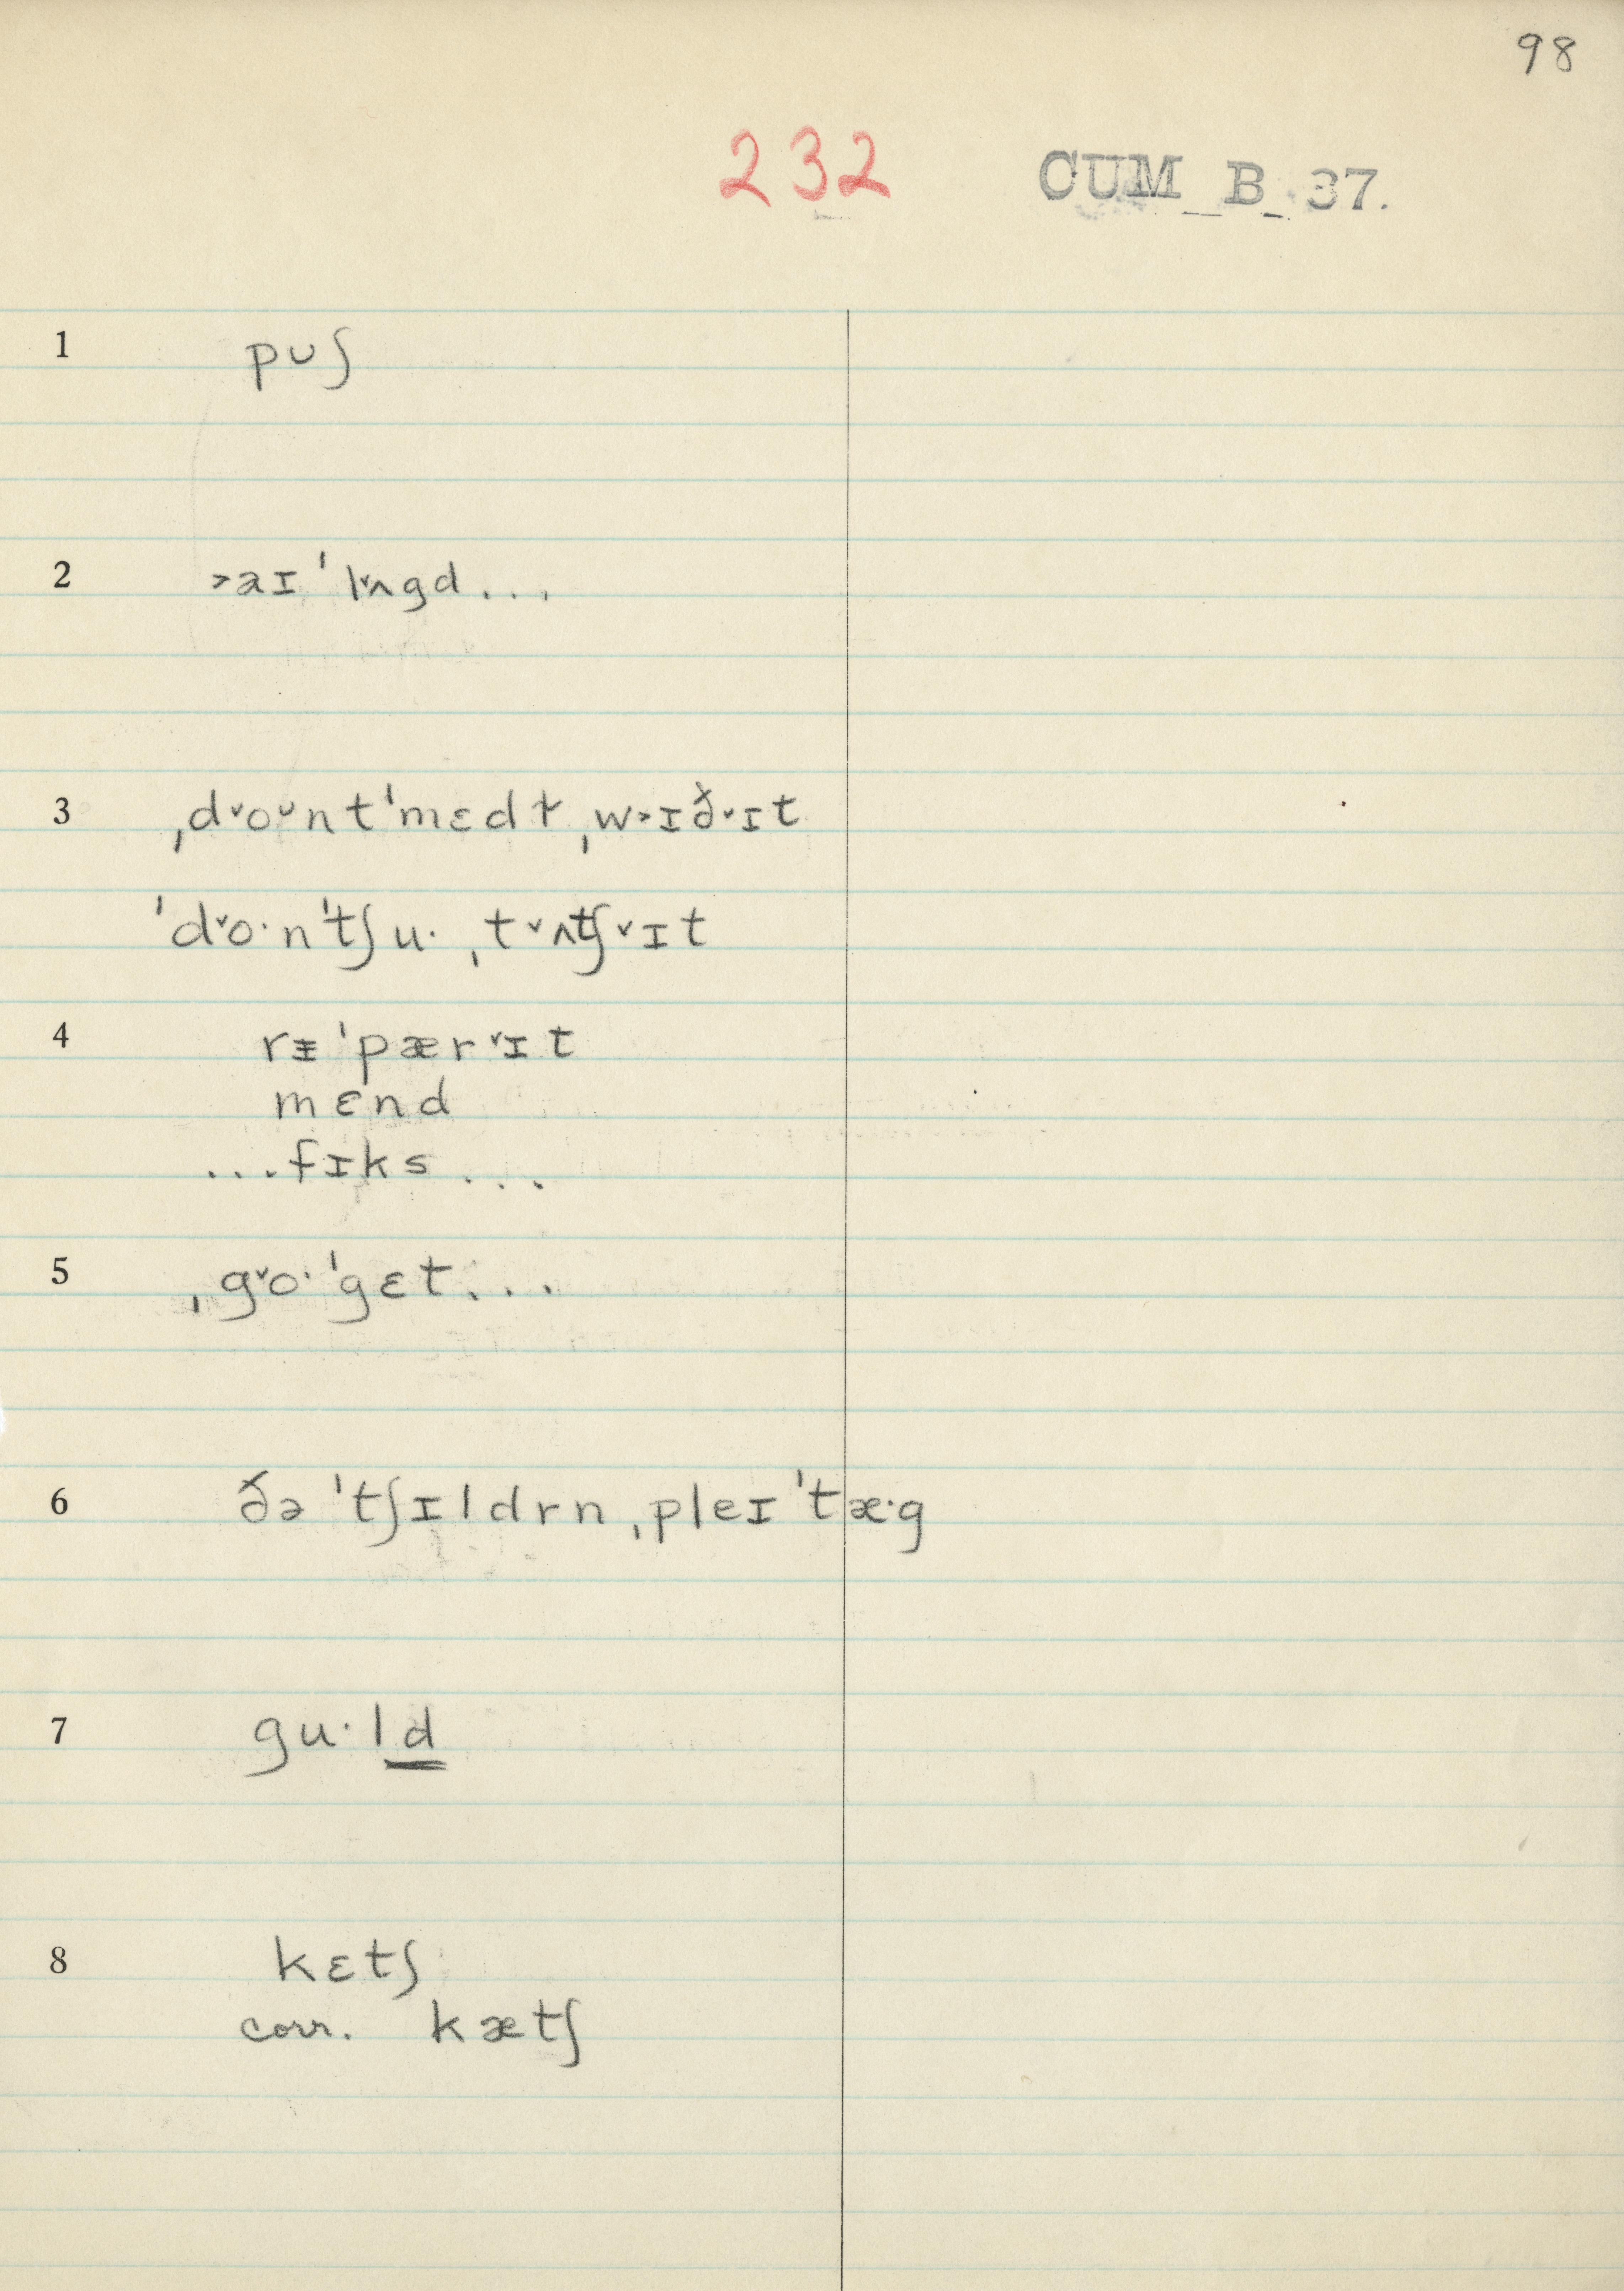 98
232 CUM_B_37.
1 pʊʃ
2 ˃aɪ ˈl˅ʌgd...
3 ˌd˅oʊntˈmɛdɫ ˌw˃ɪð˅ɪt
ˈd˅o·nˈtʃu· ˌt˅ʌtʃ˅ɪt
4 rᵻˈpær˅ɪt
mɛnd
...fɪks...
5 ˌg˅o·ˈgɛt...
6 ðə ˈtʃɪldrn ˌpleɪˈtæ·g
7 gu·ld
8 kɛtʃ
corr. kætʃ